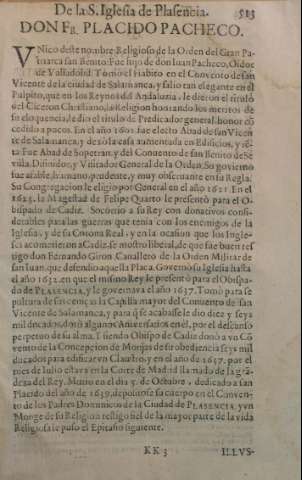 De la S. Iglesia de Plasencia. 513
DON FR. PLACIDO PACHECO.
VNico deste nombre, Religioso de la Orden del Gran Pa-
triarca san Benito: Fue hijo de don Iuan Pacheco, Oidor
de Valladolid. Tomo el habito en el Convento de san
Vicente de la ciudad de Salamanca, y salio tan elegante en el
Pulpito, que en los Reynos del Andaluzia, le dieron el titulo
del Ciceron Christiano, la Religion honrando los meritos de
su eloquencia, le dio el titulo de Predicador general, honor cõ
cedido a pocos. En el año 1601. fue electo Abad de san Vicen
te de Salamanca, y dexò la casa aumentada en Edificios, y rē
ta: Fue Abad de Sopetran, y del Convento de san Benito de Se
villa, Difinidor, y Visitador General de la Orden. Su govierno
fue afable, humano, prudente, y muy observante en la Regla.
Su Congregacion le eligio por General en el año 1621. En el
1624. la Magestad de Felipe Quarto le presentò para el O-
bispado de Cadiz. Socorrio a su Rey con donativos consi-
derables para las guerras que tenia con los enemigos de la
Iglesia, y de su Corona Real, y en la ocasion que los Ingle-
ses acometieron a Cadiz, se mostro liberal, de que fue buen tes
tigo don Fernando Giron, Cavallero de la Orden Militar de
san Iuan, que defendio aquella Placa. Governò su Iglesia hasta
el año 1632. en que el mismo Rey le presentò para el Obispa-
do de PLASENCIA, y le governò hasta el 1637. Tomo para se
pultura de sus cenizas la Capilla mayor del Convento de san
Vicente de Salamanca, y para que se acabasse le dio diez y seys
mil ducados, dotò algunos Aniversarios en èl, por el descanso
perpetuo de su alma. Y siendo Obispo de Cadiz donò a vn Cõ
vento de la Concepcion de Monjas de su obediencia seys mil
ducados para edificar vn Claustro, y en el año de 1637. por el
mes de Iulio estava en la Corte de Madrid llamado de la grā
deza del Rey. Murio en el dia 5. de Octubre, dedicado a san
Placido del año de 1639. depositose su cuerpo en el Conven-
to de los Padres Dominicos de la Ciudad de PLASENCIA, y vn
Monge de su Religion testigo fiel de la mayor parte de la vida
Religiosa le puso el Epitafio siguiente.
KK 3 ILLVS-